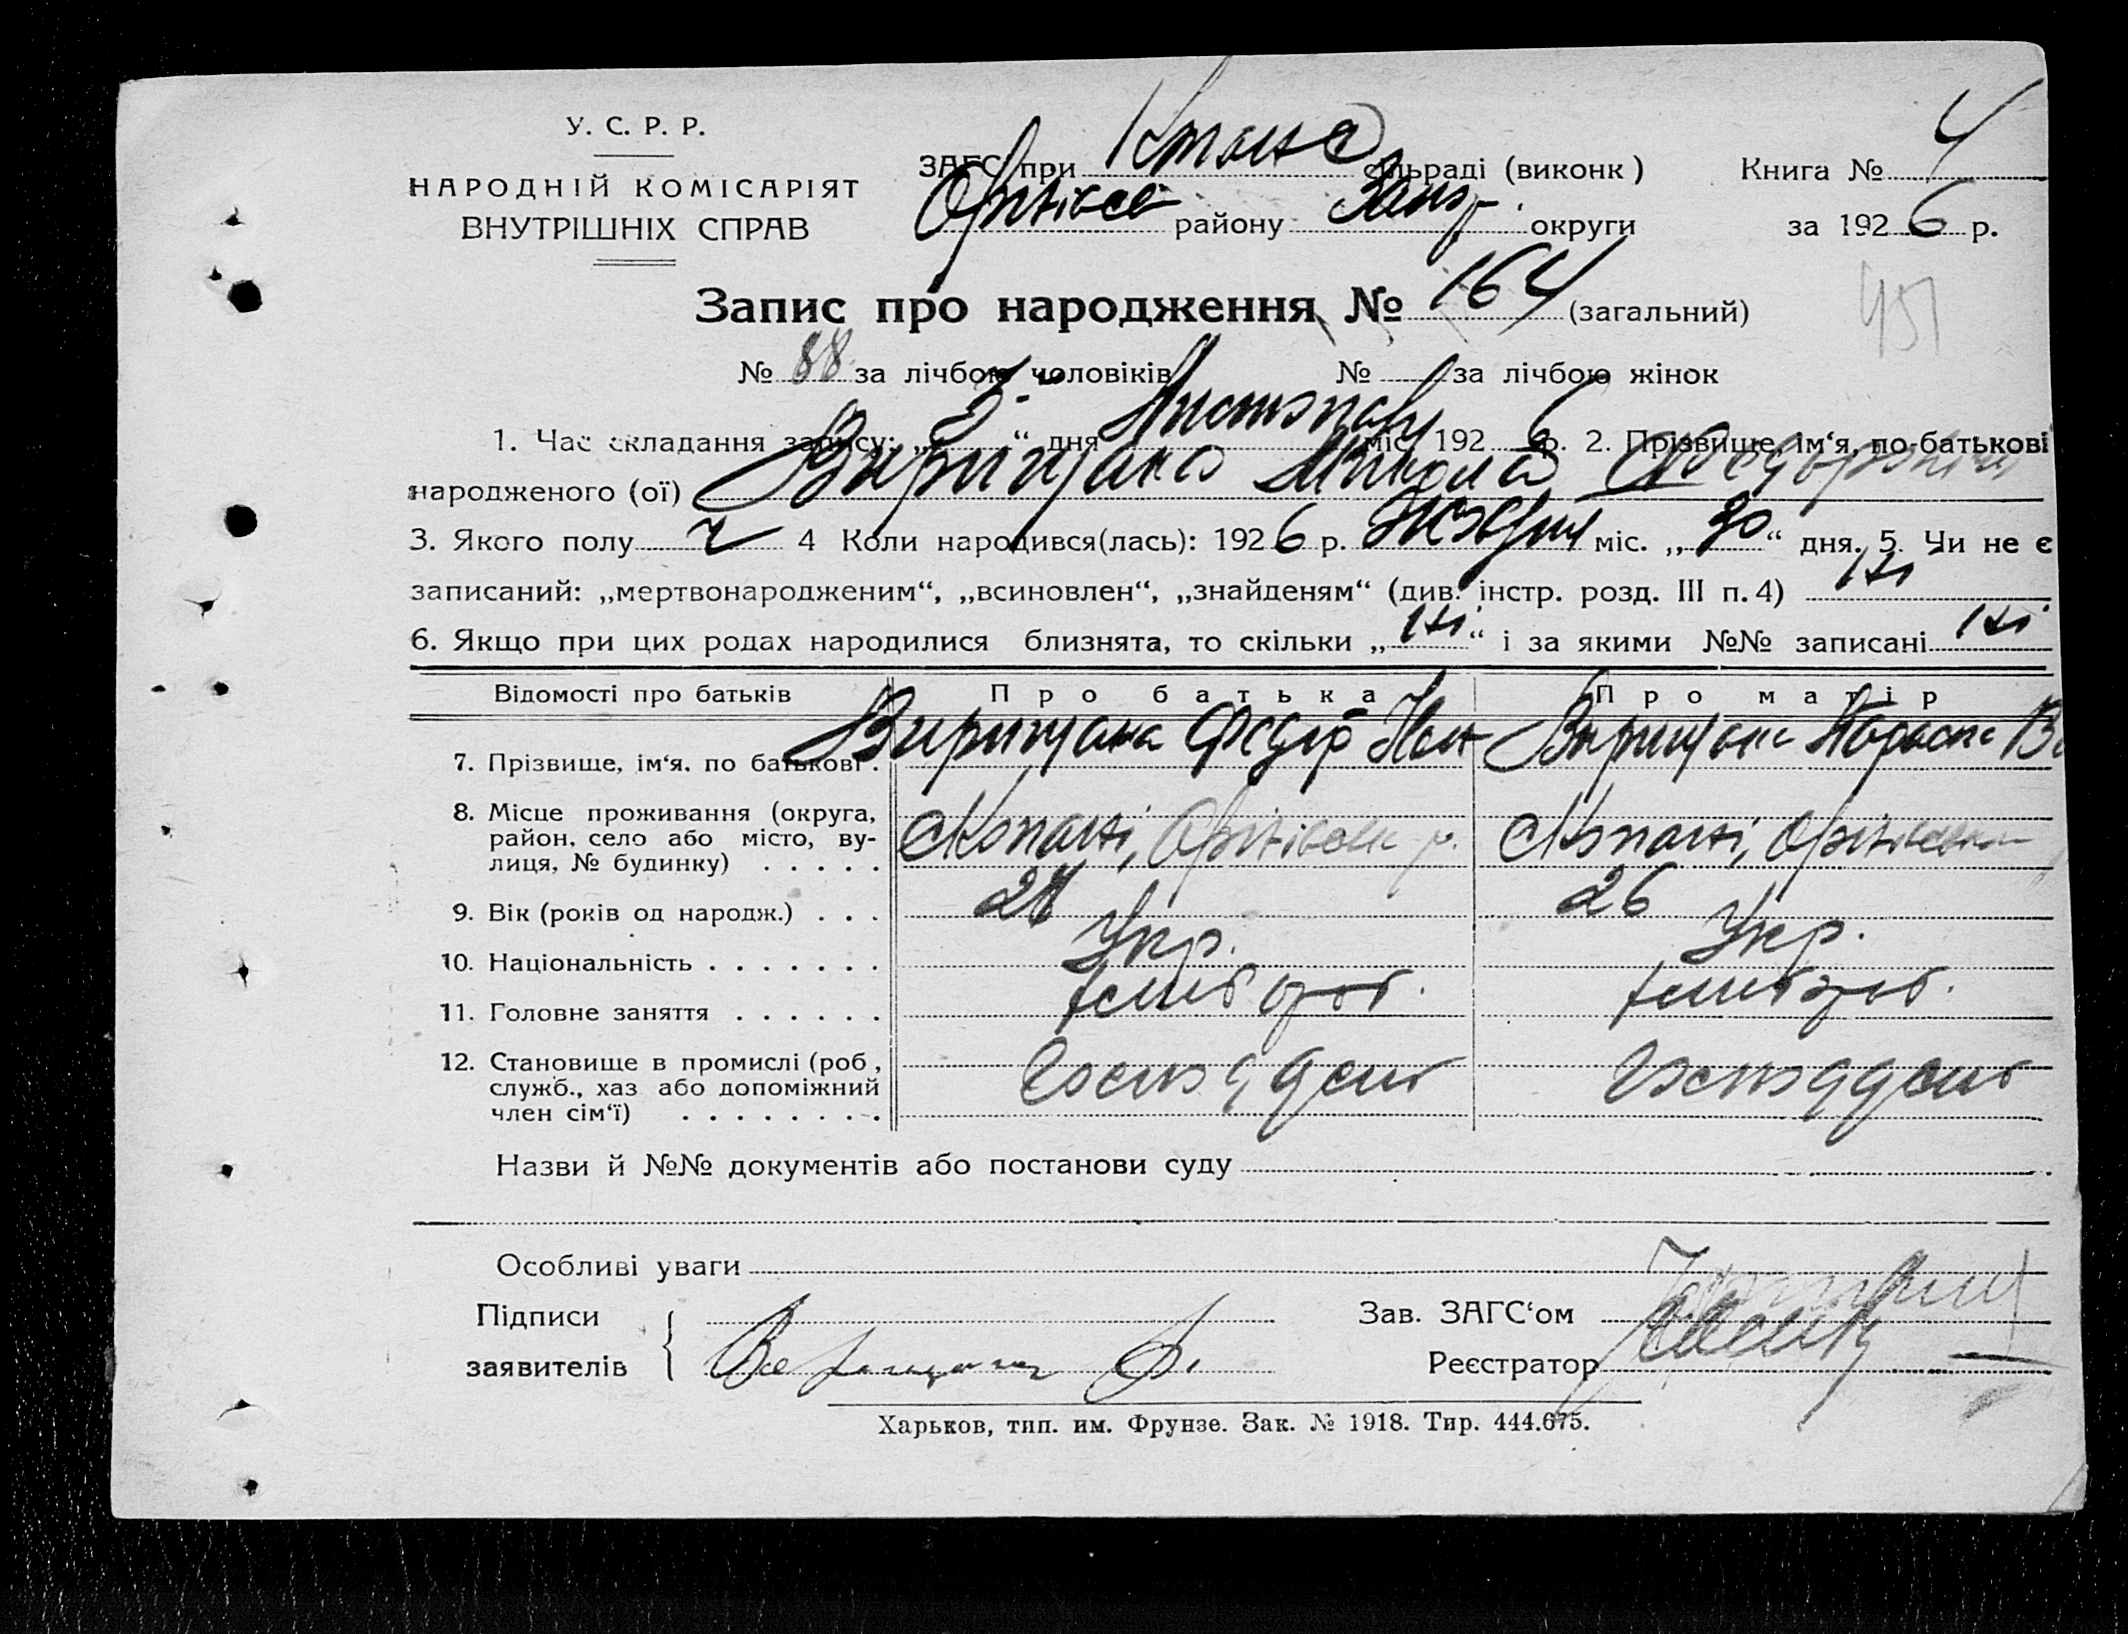 У. С. Р. Р.
НАРОДНІЙ КОМІСАРІЯТ
ВНУТРІШНІХ СПРАВ
ЗАГС при сільраді (виконк)
Оріхівсь району Запор. округи
Книга № 4
за 1926 р.
Запис про народження № 164 (загальний)
451
№ 88 за лічбою чоловіків № за лічбою жінок
1. Час складання запису: „3“ дня Листопад міс. 1926 р. 2. Прізвище, ім‘я, по-батькові
народженого (ої) Вирищака Микола Федорович
3. Якого полу ч 4 Коли народився(лась): 1926 р. Жовтня міс. „30“ дня. 5. Чи не є
записаний: „мертвонародженим“, „всиновлен“, „знайденям“ (див. інстр. розд. III п. 4) Ні
6. Якщо при цих родах народилися близнята, то скільки „Ні“ і за якими №№ записані Ні
Відомості про батьків Про батька Про матір
7. Прізвище, ім‘я, по батькові . Вирищака Федір Вирищака Параска
8. Місце проживання (округа,
район, село або місто, ву-
лиця, № будинку) . . . . . Копані, Оріхівськ р. Копані, Оріхівськ
9. Вік (років од народж.) . . . 28 26
10. Національність . . . . . . . Укр. Укр.
11. Головне заняття . . . . . . хлібороб. хлібороб.
12. Становище в промислі (роб,
служб., хаз або допоміжний
член сім‘ї) . . . . . . . .
Назви й №№ документів або постанови суду
Особливі уваги
Підписи
заявителів
Зав. ЗАГС‘ом
Реєстратор
Харьков, тип. им. Фрунзе. Зак. № 1918. Тир. 444.675.